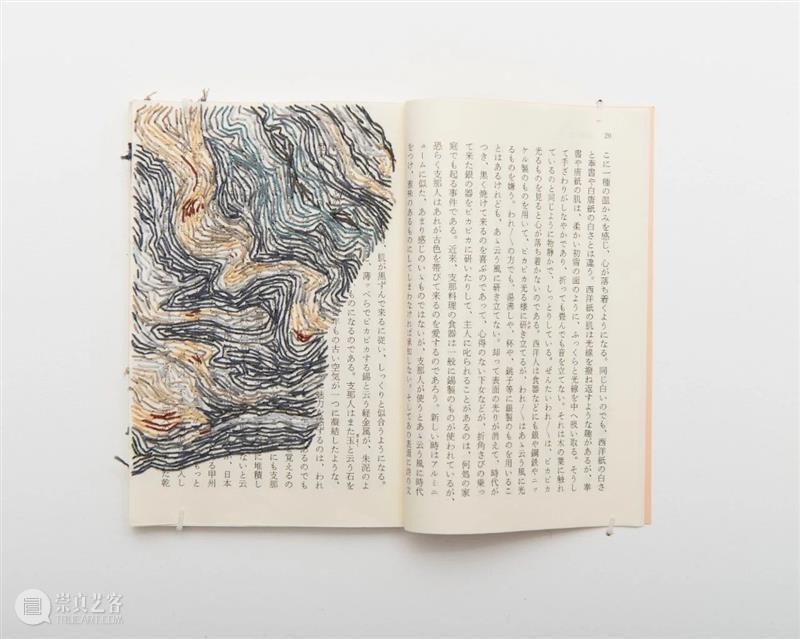 20
こに一種の温かみを感じ、心が落ち着くようになる。同じ白いのでも、西洋紙の白さ
と奉書や白唐紙の白さとは違う。西洋紙の肌は光線を撥ね返すような趣があるが、奉
書や唐紙の肌は、柔かい初雪の面のように、ふっくらと光線を中へ吸い取る。そうし
て手ざわりがしなやかであり、折っても畳んでも音を立てない。それは木の葉に触れ
ているのと同じように物静かで、しっとりしている。ぜんたいわれ〳〵は、ピカピカ
光るものを見ると心が落ち着かないのである。西洋人は食器などにも銀や鋼鉄やニッ
ケル製のものを用いて、ピカピカ光る様に研き立てるが、われ〳〵はあゝ云う風に光
るものを嫌う。われ〳〵の方でも、湯沸しや、杯や、銚子等に銀製のものを用いるこ
とはあるけれども、あゝ云う風に研き立てない。却って表面の光りが消えて、時代が
つき、黒く焼けて来るのを喜ぶのであって、心得のない下女などが、折角さびの乗っ
て来た銀の器をピカピカに研いたりして、主人に叱られることがあるのは、何処の家
庭でも起る事件である。近来、支那料理の食器は一般に錫製のものが使われているが、
恐らく支那人はあれが古色を帯びて来るのを愛するのであろう。新しい時はアルミニ
ュームに似た、あまり感じのいゝものではないが、支那人が使うとあゝ云う風に時代
をつけ、雅味のあるものにしてしまわなければ承知しない。そしてあの表面に詩の文
、肌が黒ずんで来るに従い、しっくりと似合うようになる。
、薄ッぺらでピカピカする錫と云う軽金属が、朱泥のよ
ものになるのである。支那人はまた玉と云う石を
年もの古い空気が一つに凝結したような、
魅力を感ずるのは、われ
あるのでも
覚えるの
にも支那
に堆積し
ないと云
が、日本
る甲州
ちっと
人し
た乾
崇真艺客
WWW.TRUEART.COM